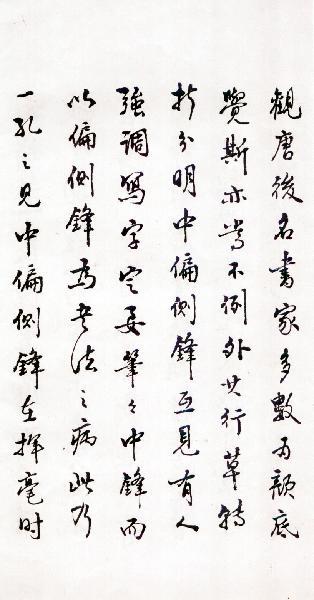 觀唐後名書家多數为顏底
覺斯亦不例外其行草轉
折分明中偏側鋒互見有人
強調寫字定要筆々中鋒而
以偏側鋒為書法之病此乃
一孔之見中偏側鋒在揮毫时